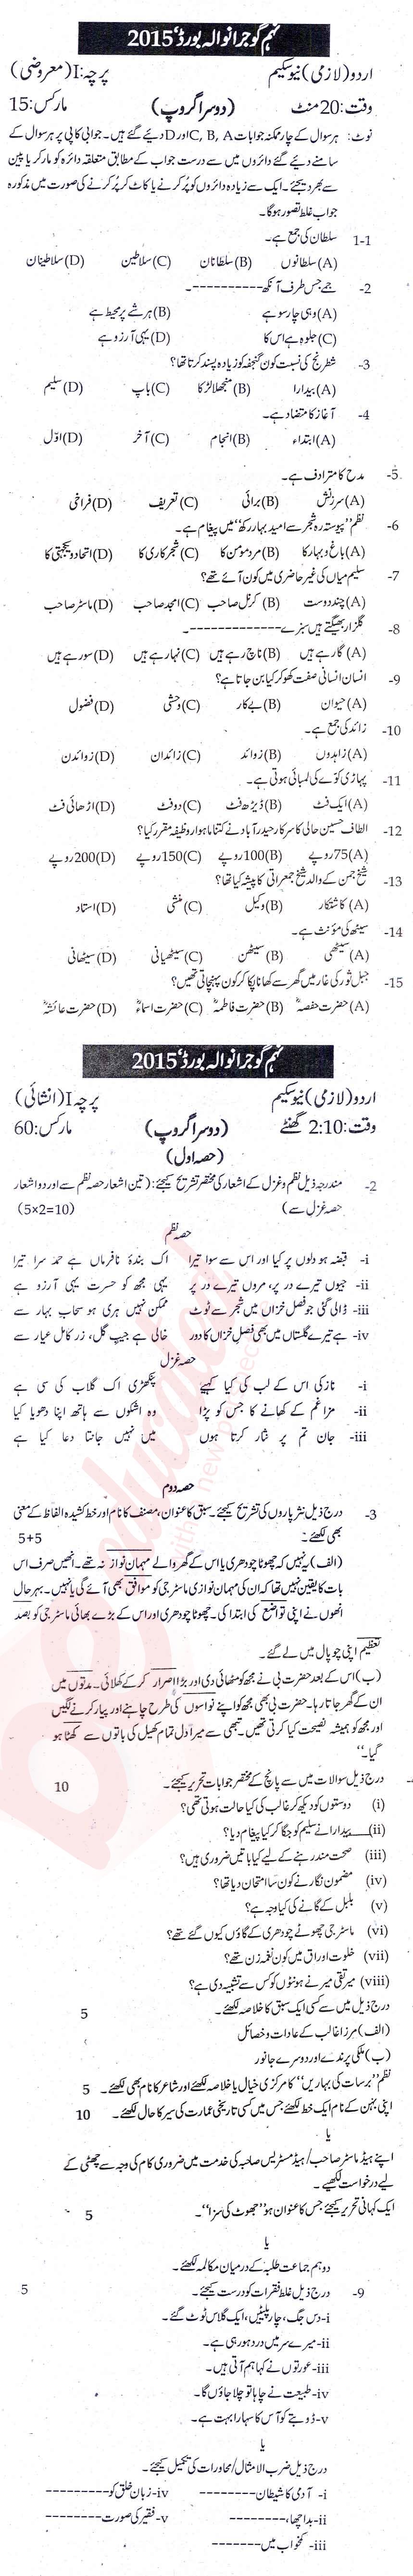 نہم گوجرانوالہ بورڈ، 2015
اردو (لازمی) نیو سکیم پرچہ: I (معروضی)
وقت: 20 منٹ (دوسرا گروپ) مارکس: 15
نوٹ: ہر سوال کے چار ممکنہ جوابات C, B, A اور D دیئے گئے ہیں۔ جوابی کاپی پر ہر سوال کے
سامنے دیئے گئے دائروں میں سے درست جواب کے مطابق متعلقہ دائرہ کو مارکر یا پین
سے بھر دیجئے۔ ایک سے زیادہ دائروں کو پُر کرنے یا کاٹ کر پُر کرنے کی صورت میں مذکورہ
جواب غلط تصور ہوگا۔
1-1 سلطان کی جمع ہے۔
(A) سلطانوں (B) سلطانان (C) سلاطین (D) سلاطینان
2- جمے جس طرف آنکھ ----------۔
(A) وہی چار سو ہے (B) ہر شے پر محیط ہے
(C) جلوہ ہے اس کا (D) یہی آرزو ہے
3- شطرنج کی نسبت کون گنجفہ کو زیادہ پسند کرتا تھا؟
(A) بیدارا (B) منجھلا لڑکا (C) باپ (D) سلیم
4- آغاز کا متضاد ہے۔
(A) ابتداء (B) انجام (C) آخر (D) اوّل
5- مدح کا مترادف ہے۔
(A) سرزنش (B) برائی (C) تعریف (D) فراخی
6- نظم "پیوستہ رہ شجر سے امید بہار رکھ" میں پیغام ہے۔
(A) باغ و بہار کا (B) مرد مومن کا (C) شجر کاری کا (D) اتحاد و یکجہتی کا
7- سلیم میاں کی غیر حاضری میں کون آئے تھے؟
(A) چند دوست (B) کرنل صاحب (C) امجد صاحب (D) ماسٹر صاحب
8- گلزار بھیگتے ہیں سبزے ------------۔
(A) گا رہے ہیں (B) ناچ رہے ہیں (C) نہا رہے ہیں (D) سو رہے ہیں
9- انسان انسانی صفت کھو کر کیا بن جاتا ہے؟
(A) حیوان (B) بے کار (C) وحشی (D) فضول
10- زائد کی جمع ہے۔
(A) زاہدوں (B) زوائد (C) زائدان (D) زوائدن
11- پہاڑی کوّے کی لمبائی ہوتی ہے۔
(A) ایک فٹ (B) ڈیڑھ فٹ (C) دو فٹ (D) اڑھائی فٹ
12- الطاف حسین حالی کا سرکار حیدر آباد نے کتنا ماہوار وظیفہ مقرر کیا؟
(A) 75 روپے (B) 100 روپے (C) 150 روپے (D) 200 روپے
13- شیخ جمن کے والد شیخ جمعراتی کا پیشہ کیا تھا؟
(A) کاشتکار (B) وکیل (C) منشی (D) استاد
14- سیٹھ کی مؤنث ہے۔
(A) سیٹھی (B) سیٹھن (C) سیٹھیانی (D) سیٹھانی
15- جبل ثور کی غار میں گھر سے کھانا پکا کر کون پہنچاتی تھیں؟
(A) حضرت حفصہؓ (B) حضرت فاطمہؓ (C) حضرت اسماءؓ (D) حضرت عائشہؓ
نہم گوجرانوالہ بورڈ، 2015
اردو (لازمی) نیو سکیم پرچہ I (انشائی)
وقت: 2:10 گھنٹے (دوسرا گروپ) مارکس: 60
(حصہ اول)
2- مندرجہ ذیل نظم و غزل کے اشعار کی مختصر تشریح کیجئے: (تین اشعار حصہ نظم سے اور دو اشعار
حصہ غزل سے) (5×2=10)
حصہ نظم
i- قبضہ ہو دلوں پر کیا اور اس سے سوا تیرا اک بندۂ نافرماں ہے حمد سرا تیرا
ii- جیوں تیرے در پر، مروں تیرے در پر یہی مجھ کو حسرت یہی آرزو ہے
iii- ڈالی گئی جو فصل خزاں میں شجر سے ٹوٹ ممکن نہیں ہری ہو سحاب بہار سے
iv- ہے تیرے گلستاں میں بھی فصل خزاں کا دور خالی ہے جیب گل، زر کامل عیار سے
حصہ غزل
i- نازکی اس کے لب کی کیا کہیے پنکھڑی اک گلاب کی سی ہے
ii- مزا غم کے کھانے کا جس کو پڑا وہ اشکوں سے ہاتھ اپنا دھویا کیا
iii- جان تم پر نثار کرتا ہوں میں نہیں جانتا دعا کیا ہے
حصہ دوم
3- درج ذیل نثر پاروں کی تشریح کیجئے۔ سبق کا عنوان، مصنف کا نام اور خط کشیدہ الفاظ کے معنی
بھی لکھئے: 5+5
(الف) یہ نہیں کہ چھوٹا چودھری یا اس کے گھر والے مہمان نواز نہ تھے۔ انھیں صرف اس
بات کا یقین نہیں تھا کہ ان کی مہمان نوازی ماسٹر جی کو موافق بھی آئے گی یا نہیں۔ بہر حال
انھوں نے اپنی تواضع کی ابتدا کی۔ چھوٹا چودھری اور اس کے بڑے بھائی ماسٹر جی کو بصد
تعظیم اپنی چوپال میں لے گئے۔
(ب) اس کے بعد حضرت بی نے مجھ کو مٹھائی دی اور بڑا اصرار کر کے کھلائی۔ مدتوں میں
ان کے گھر جاتا رہا۔ حضرت بی بھی مجھ کو اپنے نواسوں کی طرح چاہنے اور پیار کرنے لگیں
اور مجھ کو ہمیشہ نصیحت کیا کرتی تھیں۔ تبھی سے میرا دل تمام کھیل کی باتوں سے کھٹا ہو
گیا۔"
درج ذیل سوالات میں سے پانچ کے مختصر جوابات تحریر کیجئے۔ 10
(i) دوستوں کو دیکھ کر غالب کی کیا حالت ہوتی تھی؟
(ii) بیدارا نے سلیم کو جگا کر کیا پیغام دیا؟
(iii) صحت مند رہنے کے لیے کیا باتیں ضروری ہیں؟
(iv) مضمون نگار نے کون سا امتحان دیا تھا؟
(v) بلبل کے گانے کی کیا وجہ ہے؟
(vi) ماسٹر جی چھوٹے چودھری کے گاؤں کیوں گئے تھے؟
(vii) خلوت اوراق میں کون نغمہ زن تھے؟
(viii) میر تقی میر نے ہونٹوں کو کس سے تشبیہ دی ہے؟
درج ذیل میں سے کسی ایک سبق کا خلاصہ لکھئے۔ 5
(الف) مرزا غالب کے عادات و خصائل
(ب) ملکی پرندے اور دوسرے جانور
نظم "برسات کی بہاریں" کا مرکزی خیال یا خلاصہ لکھئے اور شاعر کا نام بھی لکھئے۔ 5
اپنی بہن کے نام ایک خط لکھئے جس میں کسی تاریخی عمارت کی سیر کا حال لکھئے۔ 10
یا
اپنے ہیڈ ماسٹر صاحب/ہیڈ مسٹریس صاحبہ کی خدمت میں ضروری کام کی وجہ سے چھٹی کے
لیے درخواست لکھیے۔
ایک کہانی تحریر کیجئے جس کا عنوان ہو "جھوٹ کی سزا"۔ 5
یا
دو ہم جماعت طلبہ کے درمیان مکالمہ لکھئے۔
9- درج ذیل غلط فقرات کو درست کیجئے۔ 5
i- دس جگ، چار پلیٹیں، ایک گلاس ٹوٹ گئے۔
ii- میرے سر میں درد ہو رہی ہے۔
iii- عورتوں نے کہا ہم آتی ہیں۔
iv- طبیعت نے چاہا تو چلا جاؤں گا۔
v- ڈوبتے کو آس کا سہارا بہت ہے۔
یا
درج ذیل ضرب الامثال/محاورات کی تکمیل کیجئے۔
i- آدمی کا شیطان -------- iv- زبان خلق کو --------
ii- بد اچھا، -------- v- فقیر کی صورت --------
iii- کمخواب میں -------